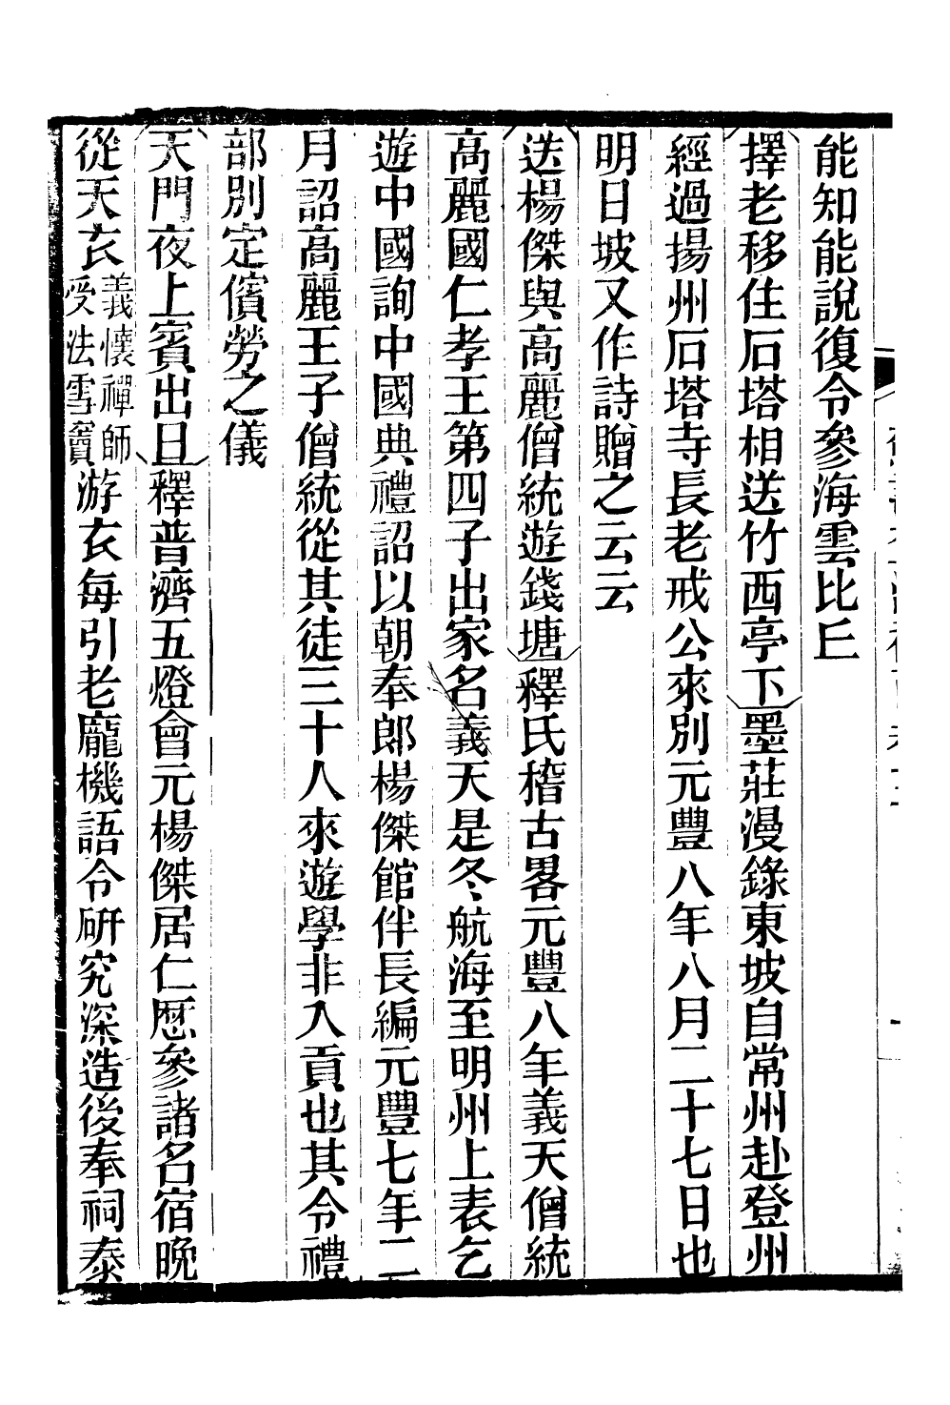 能知能說復令參海雲比丘
擇老移住石塔相送竹西亭下墨莊漫錄東坡自常州赴登州
經過揚州石塔寺長老戒公來別元豐八年八月二十七日也
明日坡又作詩贈之云云
送楊傑與高麗僧統遊錢塘釋氏稽古畧元豐八年義天僧統
高麗國仁孝王第四子出家名義天是冬航海至明州上表乞
遊中國詢中國典禮詔以朝奉郎楊傑館伴長編元豐七年二
月詔高麗王子僧統從其徒三十人來遊學非入貢也其令禮
部別定儐勞之儀
天門夜上賓出日釋普濟五燈會元楊傑居仁厯參諸名宿晚
從天衣義懷禪師受法雪竇游衣每引老龐機語令研究深造後奉祠泰